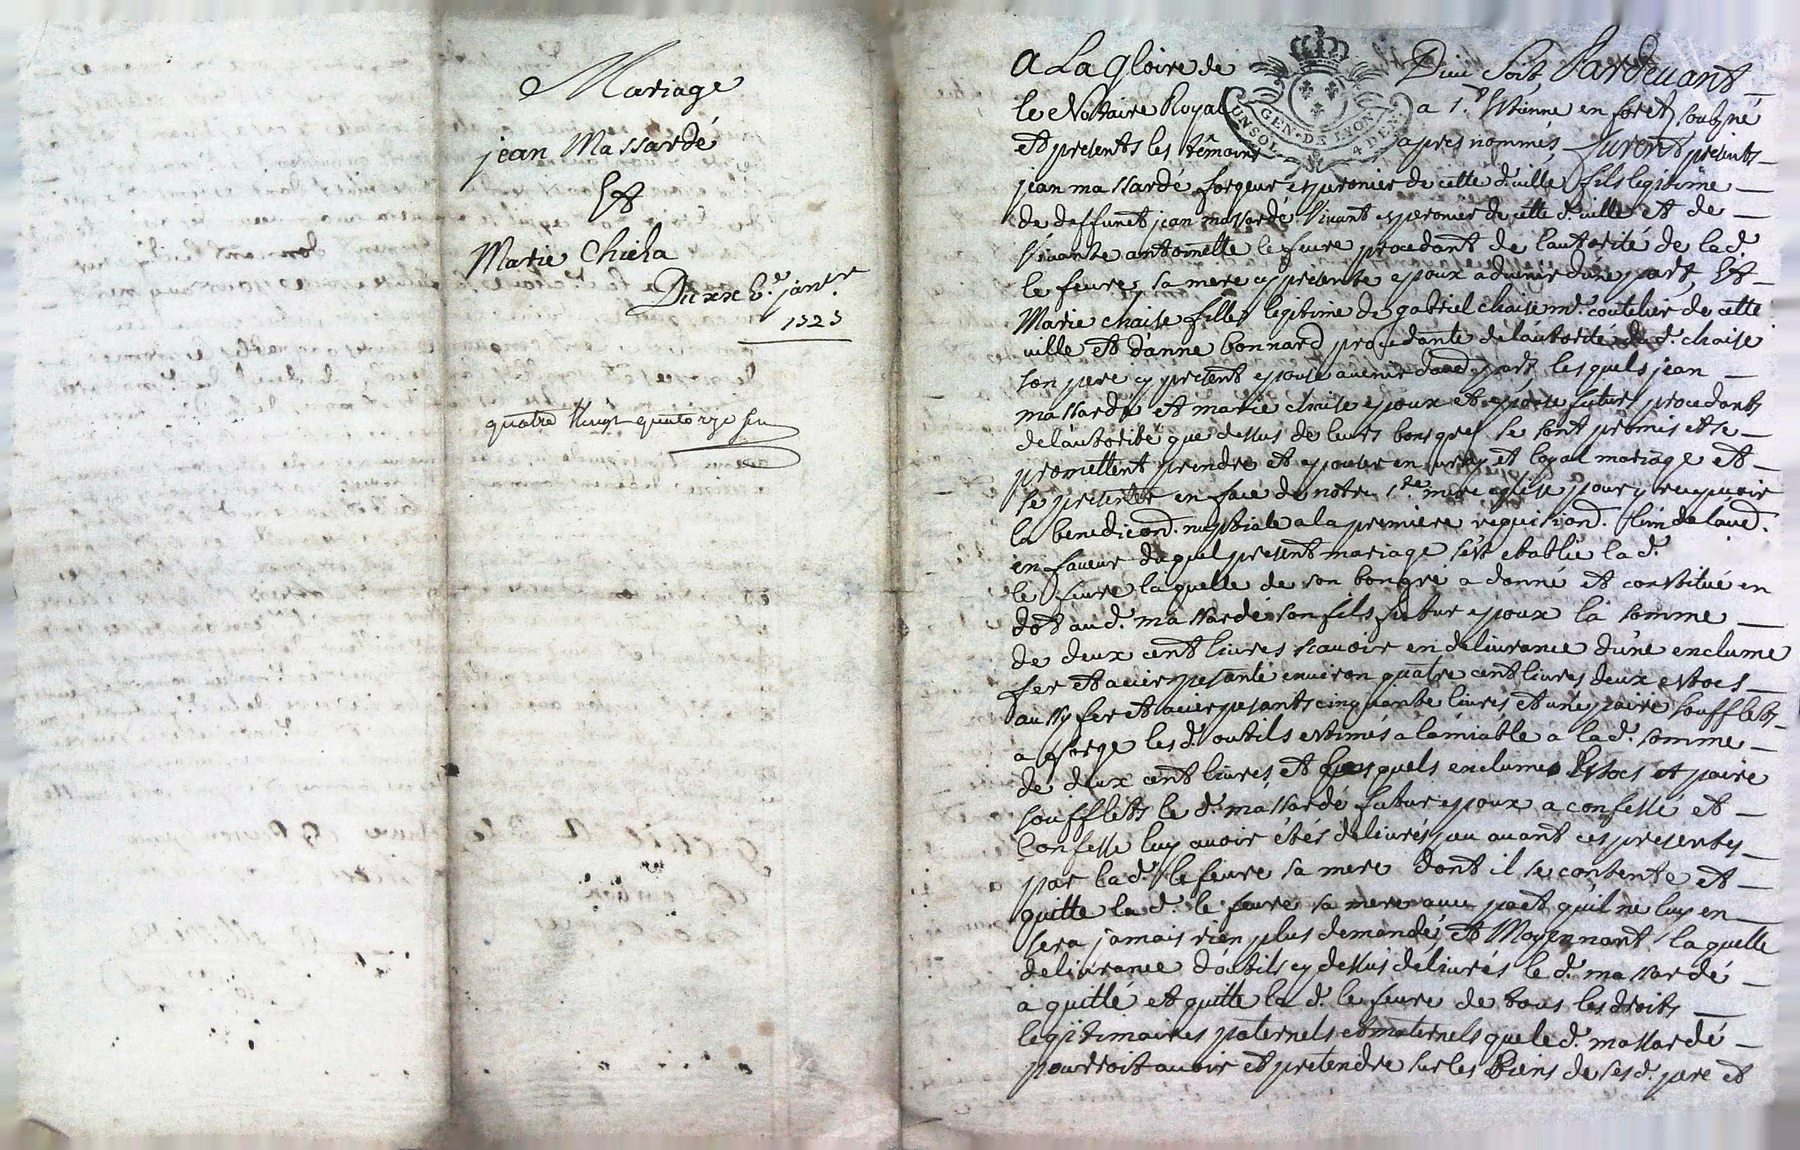 Mariage
jean Massardé
Et
Marie Chieza
Du xx e. janr.
1723
quatre Vingt quatorze
A La gloire de Dieu Soit Pardevant
le Notaire Royal a St. Etienne en foretz soubzné
et presents les têmoins apres nommés furent presents
jean massardé forgeur esperonier de cette d. ville fils legitime
de deffunct jean massardé vivant esperonier de cette d. ville et de
vivante antoinette le feure procedant de l'autorité de lad.
le feure sa mere cy presente epoux advenir d'une part, Et
Marie chaise fille legitime de gabriel chaise md. coutelier de cette
ville et d'anne bonnard procedante de l'autorité dud. chaise
son pere cy present epouse avenir d'autre part, les quels jean
massardé et marie chaise epoux et epouse futurs procedants
de l'autorité que dessus de leurs bons grés se sont promis et se
promettent prendre et epouser en vray et loyal mariage et
se presenter en face de notre ste. mere eglise pour y recepvoir
la benediond. nuptiale a la premiere requisiond. l'un de l'aued.
en faveur duquel present mariage s'est etablie lad.
le feure laquelle de son bon gré a donné et constitué en
dot aud. massardé son fils futur epoux la somme
de deux cent livres scavoir en delivrance d'une enclume
fer et acier pesante environ quatre cent livres deux estocs
aussy fer et acier pesants cinquante livres et une paire soufflets
a forge lesd. outils estimés a l'amiable a lad. somme
de deux cent livres et lesquels enclume Estocs et paire
soufflets le d. massardé futur epoux a confessé et
Confesse luy avoir étés delivrés peu avant ces presentes
par lad. le feure sa mere dont il se contente et
quitte lad. le feure sa mere avec pact qu'il ne luy en
sera jamais rien plus demandé, et Moyennant laquelle
delivrance d'outils cy dessus délivrés le d. massardé
a quitté et quitte lad. le feure de tous les droits
legitimaires paternels et maternels que le d. massardé
pourroit avoir et pretendre sur les Biens de sesd. pere et
GEN. DE LYON
4 DEN.